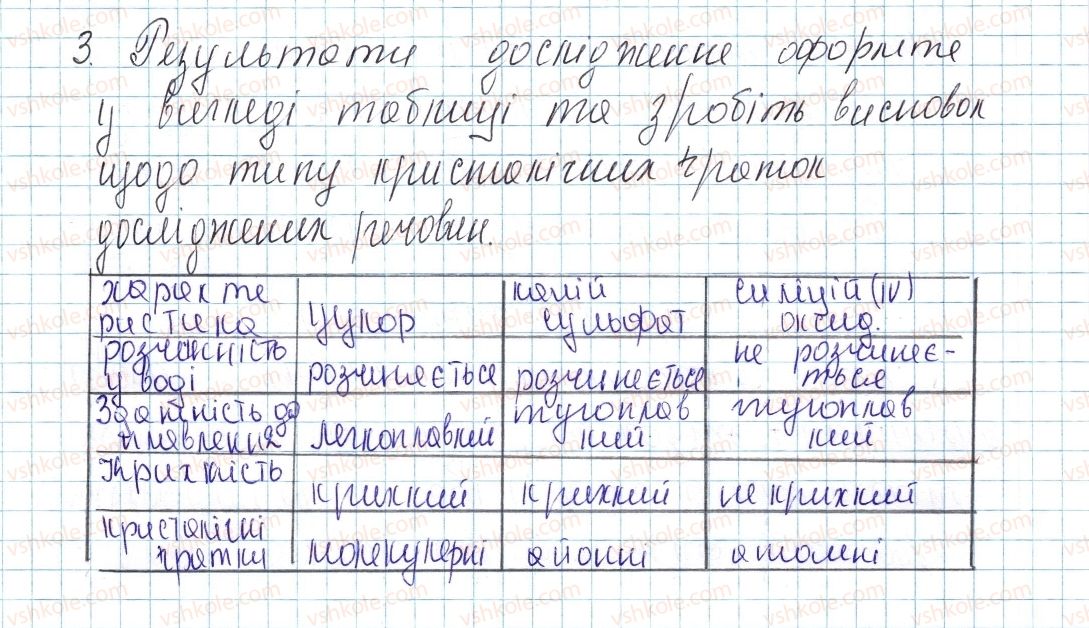 3. Результати дослідження оформте
у вигляді таблиці та зробіть висновок
щодо типу кристалічних ґраток
досліджених речовин.
характе
ристика
цукор
калій
сульфат
силіцій (IV)
оксид.
розчинність
у воді
розчиняється
розчиняється
не розчиняє-
ться
Здатність до
плавлення
легкоплавкий
тугоплав
кий
тугоплав
кий
Крихкість
крихкий
крихкий
не крихкий
кристалічні
ґратки
молекулярні
йонні
атомні